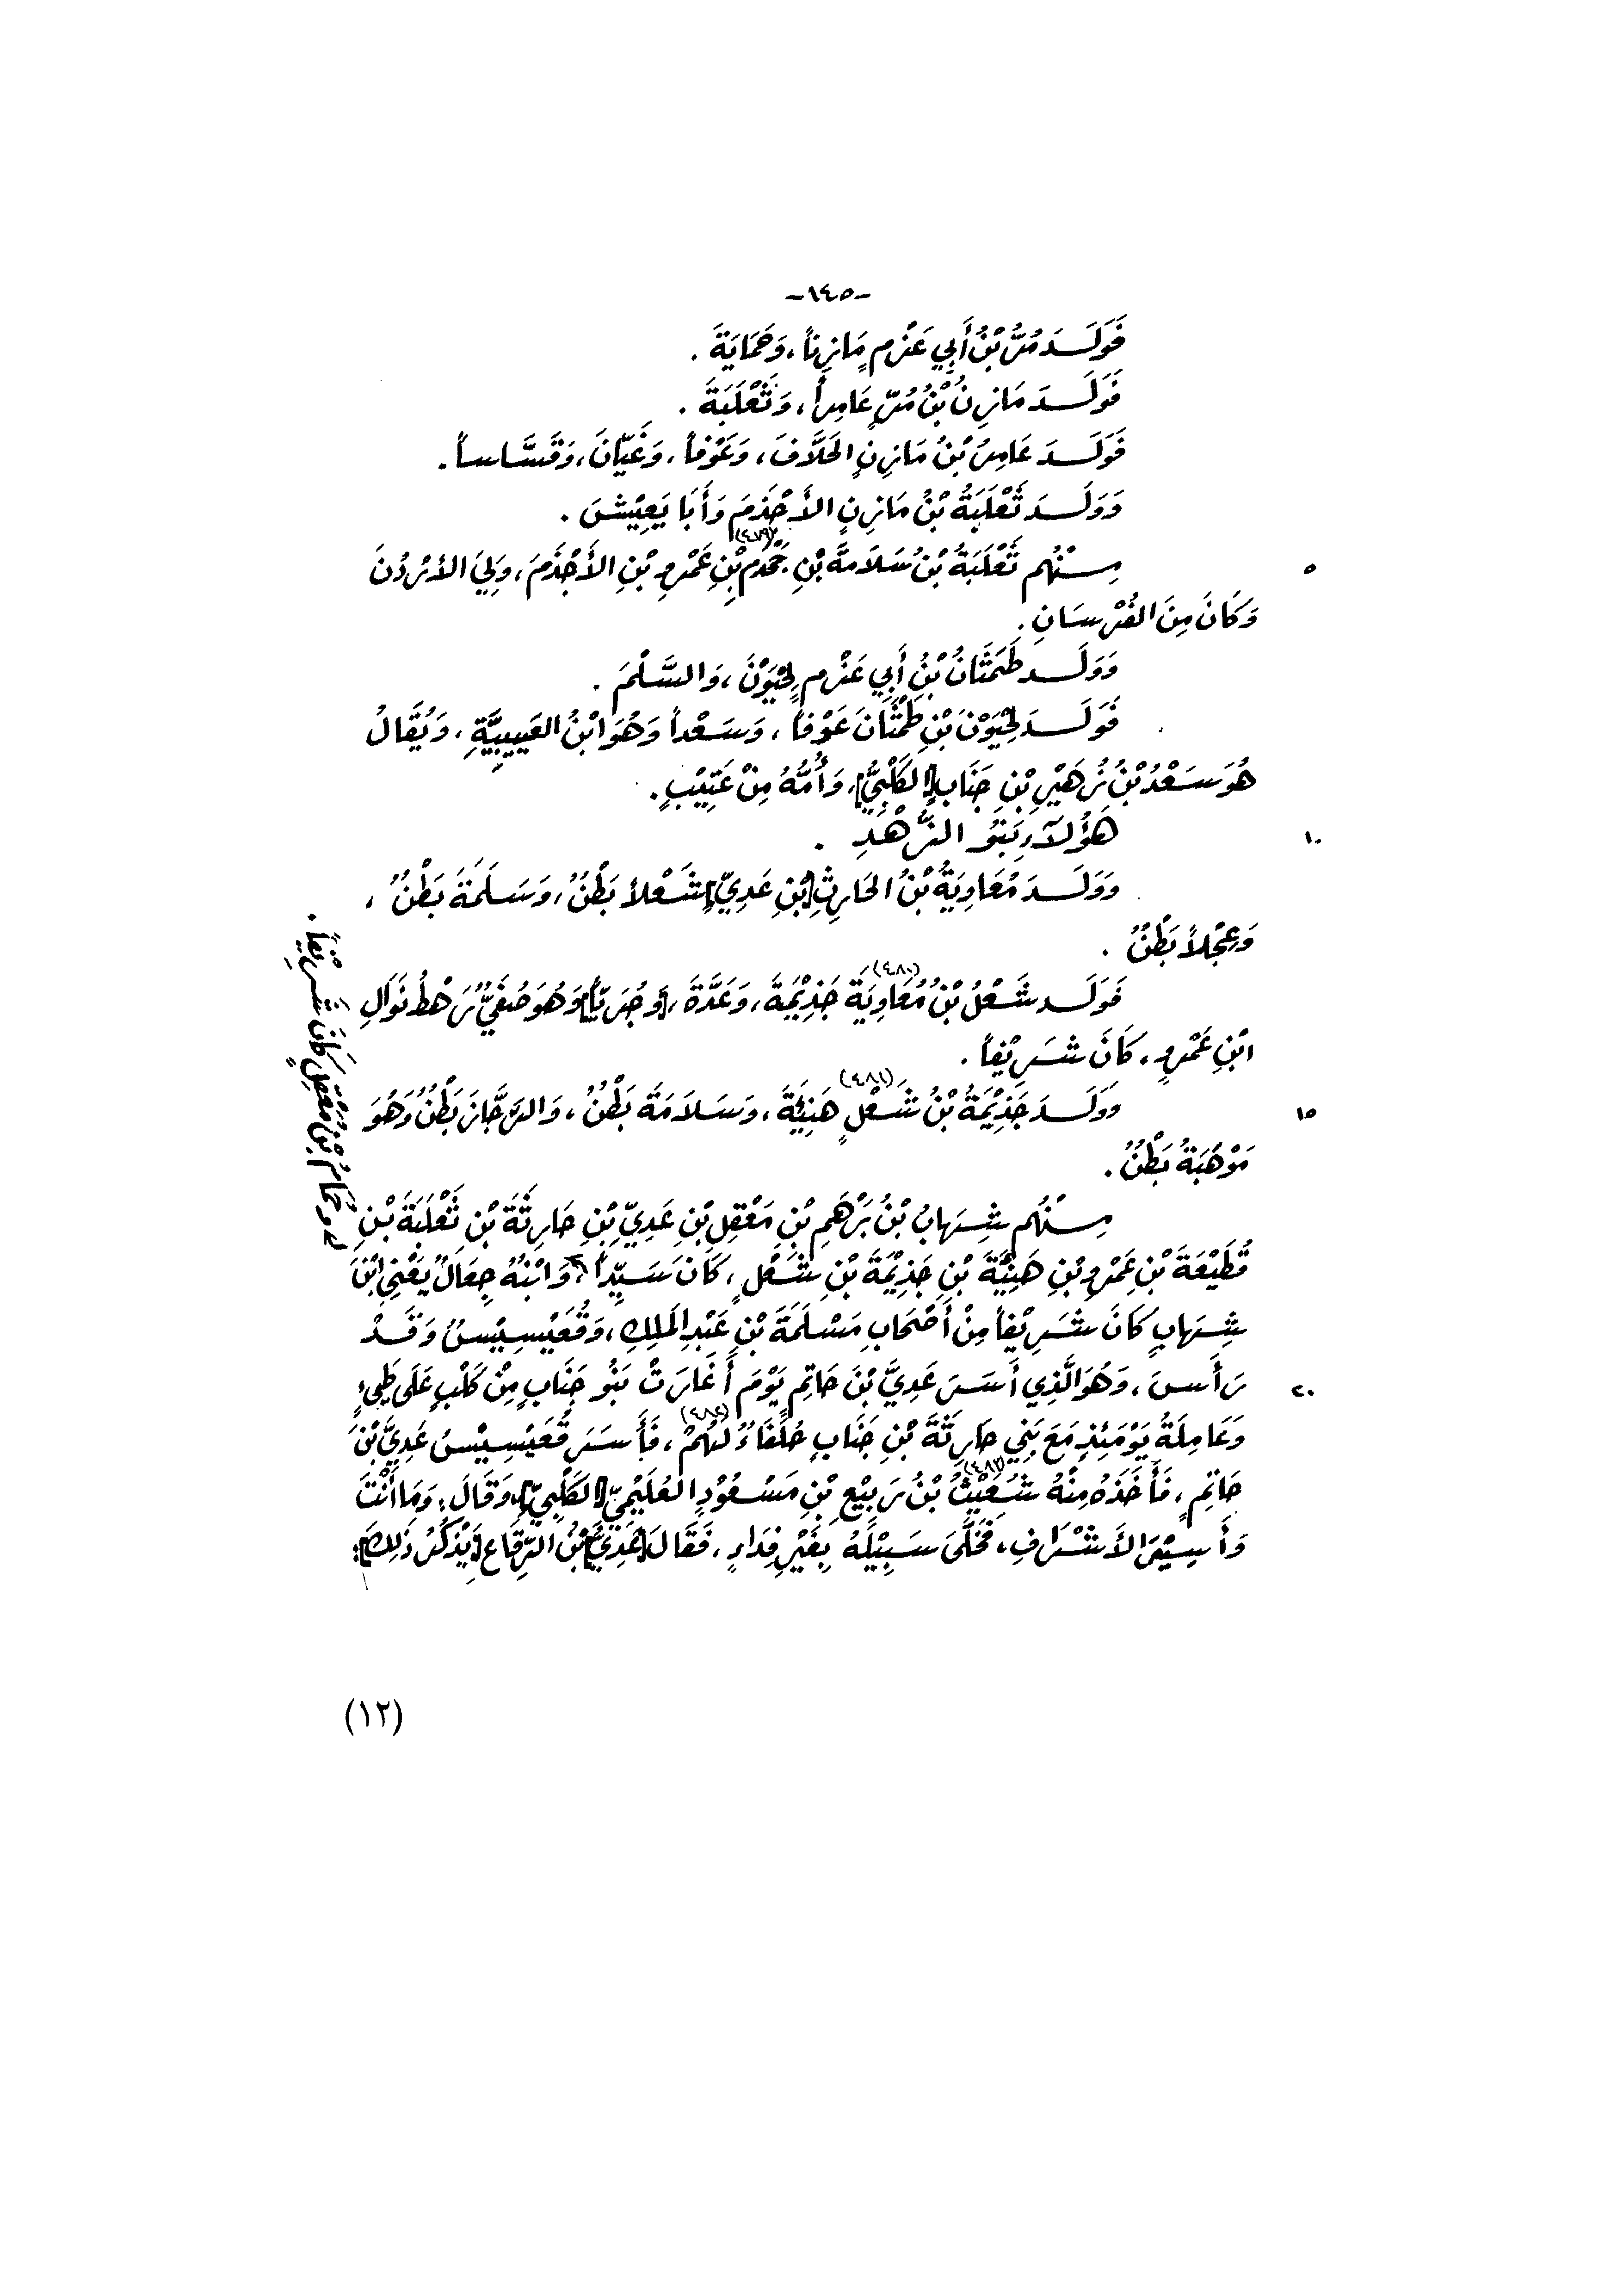 -١٤٥-
فَوَلَـدَ مُرُّ بْنُ أَبِي عَزْمٍ مَازِناً، وَحَمَايَةَ .
فَوَلَـدَ مَازِنُ بْنُ مُرٍّ عَامِراً، وَثَعْلَبَةَ .
فَوَلَـدَ عَامِرُ بْنُ مَازِنٍ الحَلَّافَ، وَعَوْفاً، وَغَيَّانَ، وَقَسَّاساً.
وَوَلَـدَ ثَعْلَبَةُ بْنُ مَازِنٍ الأَجْذَمَ وَأَبَا يَعِيْشَ .
٥ مِـنْهُم ثَعْلَبَةُ بْنُ سَلَامَةَ بْنِ جَحْدَمِ (٤٧٩) بْنِ عَمْرِو بْنِ الأَجْذَمَ، وَلِيَ الأُرْدُنَّ
وَكَانَ مِنَ الفُرْسَانِ .
وَوَلَـدَ طَمَثَانُ بْنُ أَبِي عَزْمٍ لِحْيَوْنَ، وَالسَّلْمَ .
فَوَلَـدَ لِحْيَوْنَ بْنِ طَمْثَانَ عَوْفاً، وَسَعْداً وَهُوَ ابْنُ العَيِيبِيَّةِ، وَيُقَالُ
هُوَ سَعْدُ بْنُ زُهَيْرِ بْنِ جَنَابٍ [الكَلْبِيُّ]، وَأُمُّهُ مِنْ عَتِيْبٍ .
١٠ هَؤُلاَءِ بَنُو الزُّهْدِ .
وَوَلَـدَ مُعَاوِيَةُ بْنُ الحَارِثِ [بْنِ عَدِيٍّ] شَعْلاً بَطْنٌ، وَسَلَمَةَ بَطْنٌ،
وَعِجْلاً بَطْنٌ .
فَوَلَـدَ شَعْلُ بْنُ مُعَاوِيَةَ (٤٨٠) جَذِيْمَةَ، وَعَدَّةَ، [وَجُرَيّاً] وَهُوَ صُغَيُّ رَهْطُ نَوَالِ
ابْنِ عَمْرٍو، كَانَ شَرِيْفاً .
١٥ وَوَلَـدَ جَذِيْمَةُ بْنُ شَعْلٍ (٤٨١) هَنِيَّةَ، وَسَلَامَةَ بَطْنٌ، وَالرَّجَّازَ بَطْنٌ وَهُوَ
مَوْهَبَةُ بَطْنٌ .
مِـنْهُم شِهَابُ بْنُ بَرْهَمِ بْنِ مَعْقِلِ بْنِ عَدِيِّ بْنِ حَارِثَةَ بْنِ ثَعْلَبَةَ بْنِ
قُطَيْعَةَ بْنِ عَمْرِو بْنِ هَنِيَّةَ بْنِ جَذِيْمَةَ بْنِ شَعْلٍ، كَانَ سَيِّداً، وَابْنُهُ جِعَالٌ يَعْنِي ابْنَ
شِهَابٍ كَانَ شَرِيْفاً مِنْ أَصْحَابِ مَسْلَمَةَ بْنِ عَبْدِ المَلِكِ، وَقُعَيْسِيْسُ وَقَـدْ
٢٠ رَأَسَ، وَهُوَ الَّذِي أَسَرَ عَدِيَّ بْنَ حَاتِمٍ يَوْمَ أَغَارَتْ بَنُو جَنَابٍ مِنْ كَلْبٍ عَلَى طَيِّءٍ
وَعَامِلَةُ يَوْمَئِذٍ مَعَ بَنِي حَارِثَةَ بْنِ جَنَابٍ حُلَفَاءٌ لَهُمْ (٤٨٢)، فَأَسَرَ قُعَيْسِيْسُ عَدِيَّ بْنَ
حَاتِمٍ، فَأَخَذَهُ مِنْهُ شُعَيْثُ (٤٨٣) بْنُ رَبِيْعِ بْنِ مَسْعُوْدٍ العُلَيْمِيِّ [الكَلْبِيِّ]، وَقَالَ: وَمَا أَنْتَ
وَأَسِيْرَ الأَشْرَافِ، فَخَلَّى سَبِيْلَهُ بِغَيْرِ فِدَاءٍ، فَقَالَ [عَدِيُّ] بْنُ الرِّقَاعِ [يَذْكُرُ ذَلِكَ]:
وَحَمَامُ بْنُ مَعْقِلٍ كَانَ شَرِيْفاً .
(١٢)